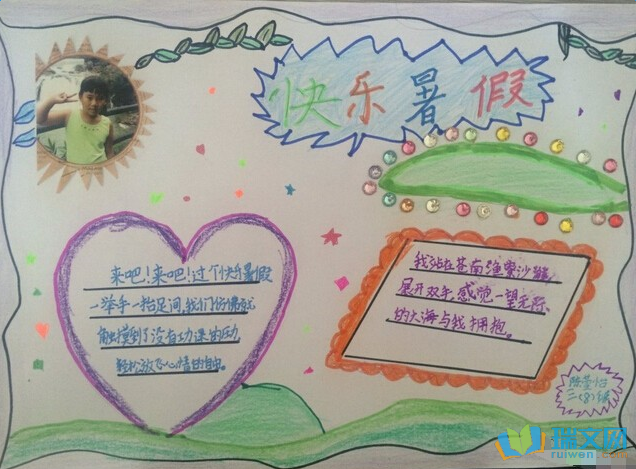 快乐暑假
来吧!来吧!过个快乐暑假
一举手一拈足间,我们仿佛就
触摸到了没有功课的压力
轻松放飞心情的自由。
我站在苍南渔寮沙滩
展开双手,感觉一望无际
的大海与我拥抱。
三(8)班
瑞文网
ruiwen.com